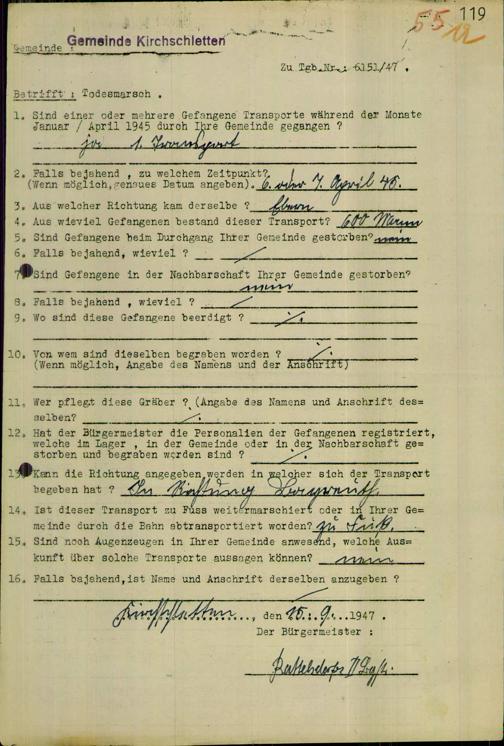 119
55
Gemeinde Kirchschletten
Gemeinde :
Zu Tgb.Nr.: 6151/47 .
Betrifft : Todesmarsch .
1. Sind einer oder mehrere Gefangene Transporte während der Monate
Januar / April 1945 durch Ihre Gemeinde gegangen ?
ja 1. Transport
2. Falls bejahend , zu welchem Zeitpunkt?
(Wenn möglich,genaues Datum angeben). 6. oder 7. April 45.
3. Aus welcher Richtung kam derselbe ? Ebern
4. Aus wieviel Gefangenen bestand dieser Transport? 600 Mann
5. Sind Gefangene beim Durchgang Ihrer Gemeinde gestorben? nein
6. Falls bejahend, wieviel ? /
7. Sind Gefangene in der Nachbarschaft Ihrer Gemeinde gestorben?
nein
8. Falls bejahend , wieviel ? /
9. Wo sind diese Gefangene beerdigt ? ./.
10. Von wem sind dieselben begraben worden ? ./.
(Wenn möglich, Angabe des Namens und der Anschrift)
11. Wer pflegt diese Gräber ? (Angabe des Namens und Anschrift des=
selben? ./.
12. Hat der Bürgermeister die Personalien der Gefangenen registriert,
welche im Lager , in der Gemeinde oder in der Nachbarschaft ge=
storben und begraben werden sind ? ./.
13. Kann die Richtung angegeben werden in welcher sich der Transport
begeben hat ? In Richtung Bayreuth.
14. Ist dieser Transport zu Fuss weitermarschiert oder in Ihrer Ge=
meinde durch die Bahn abtransportiert worden? zu Fuß.
15. Sind noch Augenzeugen in Ihrer Gemeinde anwesend, welche Aus=
kunft über solche Transporte aussagen können? nein
16. Falls bajahend,ist Name und Anschrift derselben anzugeben ?
Kirchschletten, den 15. 9. 1947 .
Der Bürgermeister :